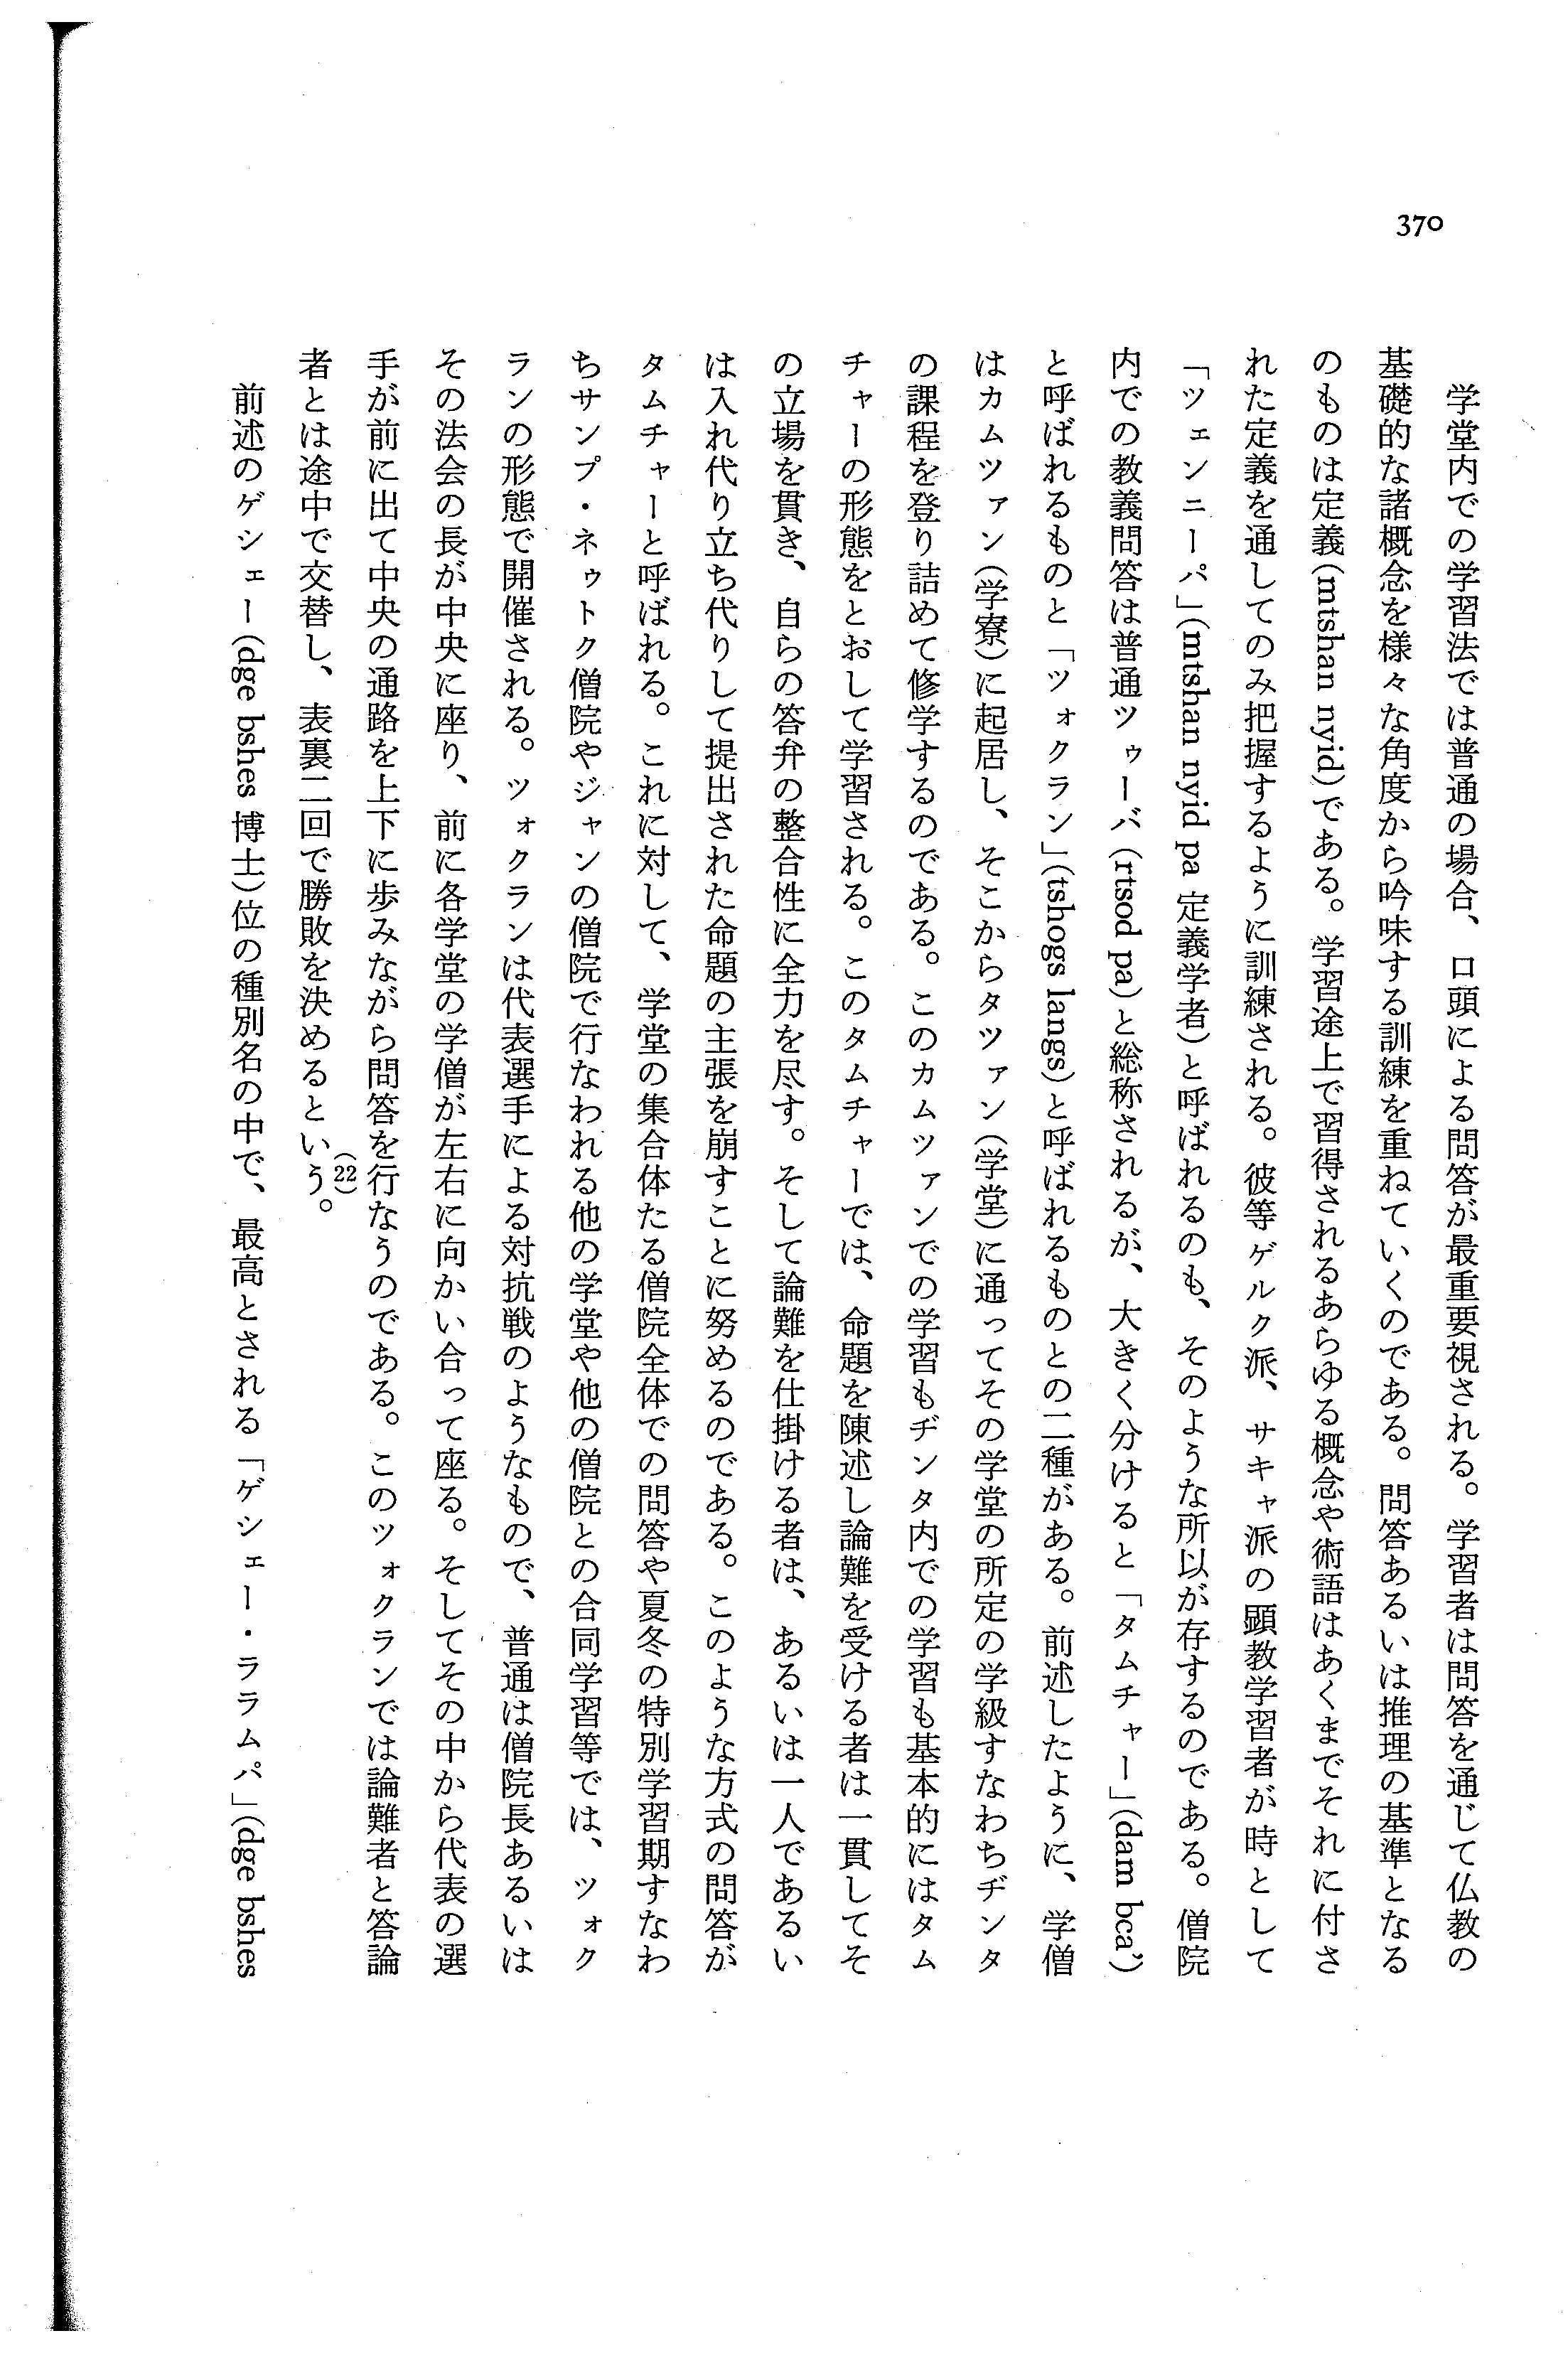 370
学堂内での学習法では普通の場合、口頭による問答が最重要視される。学習者は問答を通じて仏教の
基礎的な諸概念を様々な角度から吟味する訓練を重ねていくのである。問答あるいは推理の基準となる
のものは定義(mtshan nyid)である。学習途上で習得されるあらゆる概念や術語はあくまでそれに付さ
れた定義を通してのみ把握するように訓練される。彼等ゲルク派、サキャ派の顕教学習者が時として
「ツェンニーパ」(mtshan nyid pa 定義学者)と呼ばれるのも、そのような所以が存するのである。僧院
内での教義問答は普通ツゥーバ(rtsod pa)と総称されるが、大きく分けると「タムチャー」(dam bca')
と呼ばれるものと「ツォクラン」(tshogs langs)と呼ばれるものとの二種がある。前述したように、学僧
はカムツァン(学寮)に起居し、そこからタツァン(学堂)に通ってその学堂の所定の学級すなわちヂンタ
の課程を登り詰めて修学するのである。このカムツァンでの学習もヂンタ内での学習も基本的にはタム
チャーの形態をとおして学習される。このタムチャーでは、命題を陳述し論難を受ける者は一貫してそ
の立場を貫き、自らの答弁の整合性に全力を尽す。そして論難を仕掛ける者は、あるいは一人であるい
は入れ代り立ち代りして提出された命題の主張を崩すことに努めるのである。このような方式の問答が
タムチャーと呼ばれる。これに対して、学堂の集合体たる僧院全体での問答や夏冬の特別学習期すなわ
ちサンプ・ネゥトク僧院やジャンの僧院で行なわれる他の学堂や他の僧院との合同学習等では、ツォク
ランの形態で開催される。ツォクランは代表選手による対抗戦のようなもので、普通は僧院長あるいは
その法会の長が中央に座り、前に各学堂の学僧が左右に向かい合って座る。そしてその中から代表の選
手が前に出て中央の通路を上下に歩みながら問答を行なうのである。このツォクランでは論難者と答論
者とは途中で交替し、表裏二回で勝敗を決めるという(22)。
前述のゲシェー(dge bshes 博士)位の種別名の中で、最高とされる「ゲシェー・ララムパ」(dge bshes